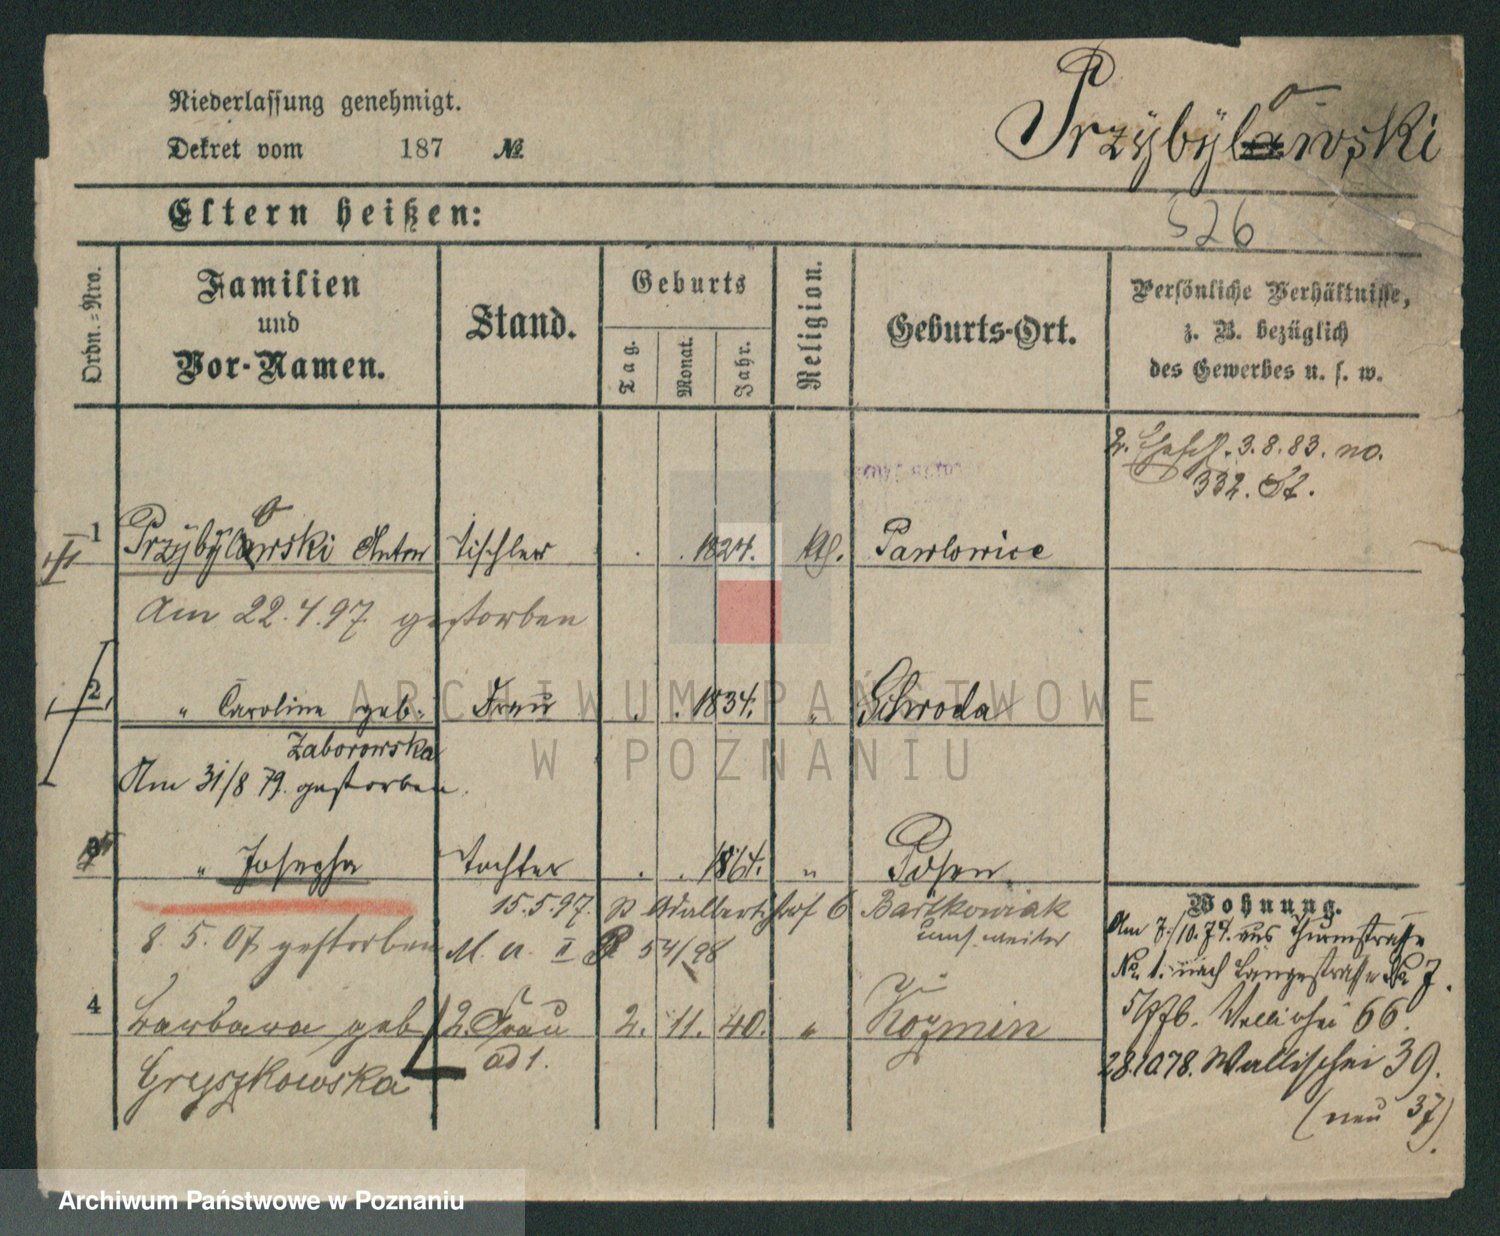 Niederlassung genehmigt.
Dekret vom 187 №
Przÿbÿlowski
Eltern heißen:
526
Ordn.=Nro.
Familien
und
Vor-Namen.
Stand.
Geburts
Tag.
Monat.
Jahr.
Religion.
Geburts-Ort.
Persönliche Verhältnisse,
z. B. bezüglich
des Gewerbes u. s. w.
2. 3.8.83. no.
332.
1 Przÿbÿlowski Anton Tischler . . 1824. Kth. Pawlowice
Am 22.4.97 gestorben
2 " Caroline geb. Frau . . 1834. " Schroda
Zaborowska
Am 31/8 79. gestorben.
3 " Josepha Tochter . . 1864. " Posen.
15.5.97. Adalbertstraße 6 Bartkowiak
8.5.07 gestorben M. a. II 54/98 weiter
Wohnung.
Am 7/10.74. aus Thurmstraße
No. 1. nach Langestraße No 7.
4 Barbara geb 2. Frau 2. 11. 40. " Kozmin
Gryszkowska ad 1.
66.
28.10.78. Wallischei 39.
(neu 37).
ARCHIWUM PAŃSTWOWE
W POZNANIU
Archiwum Państwowe w Poznaniu